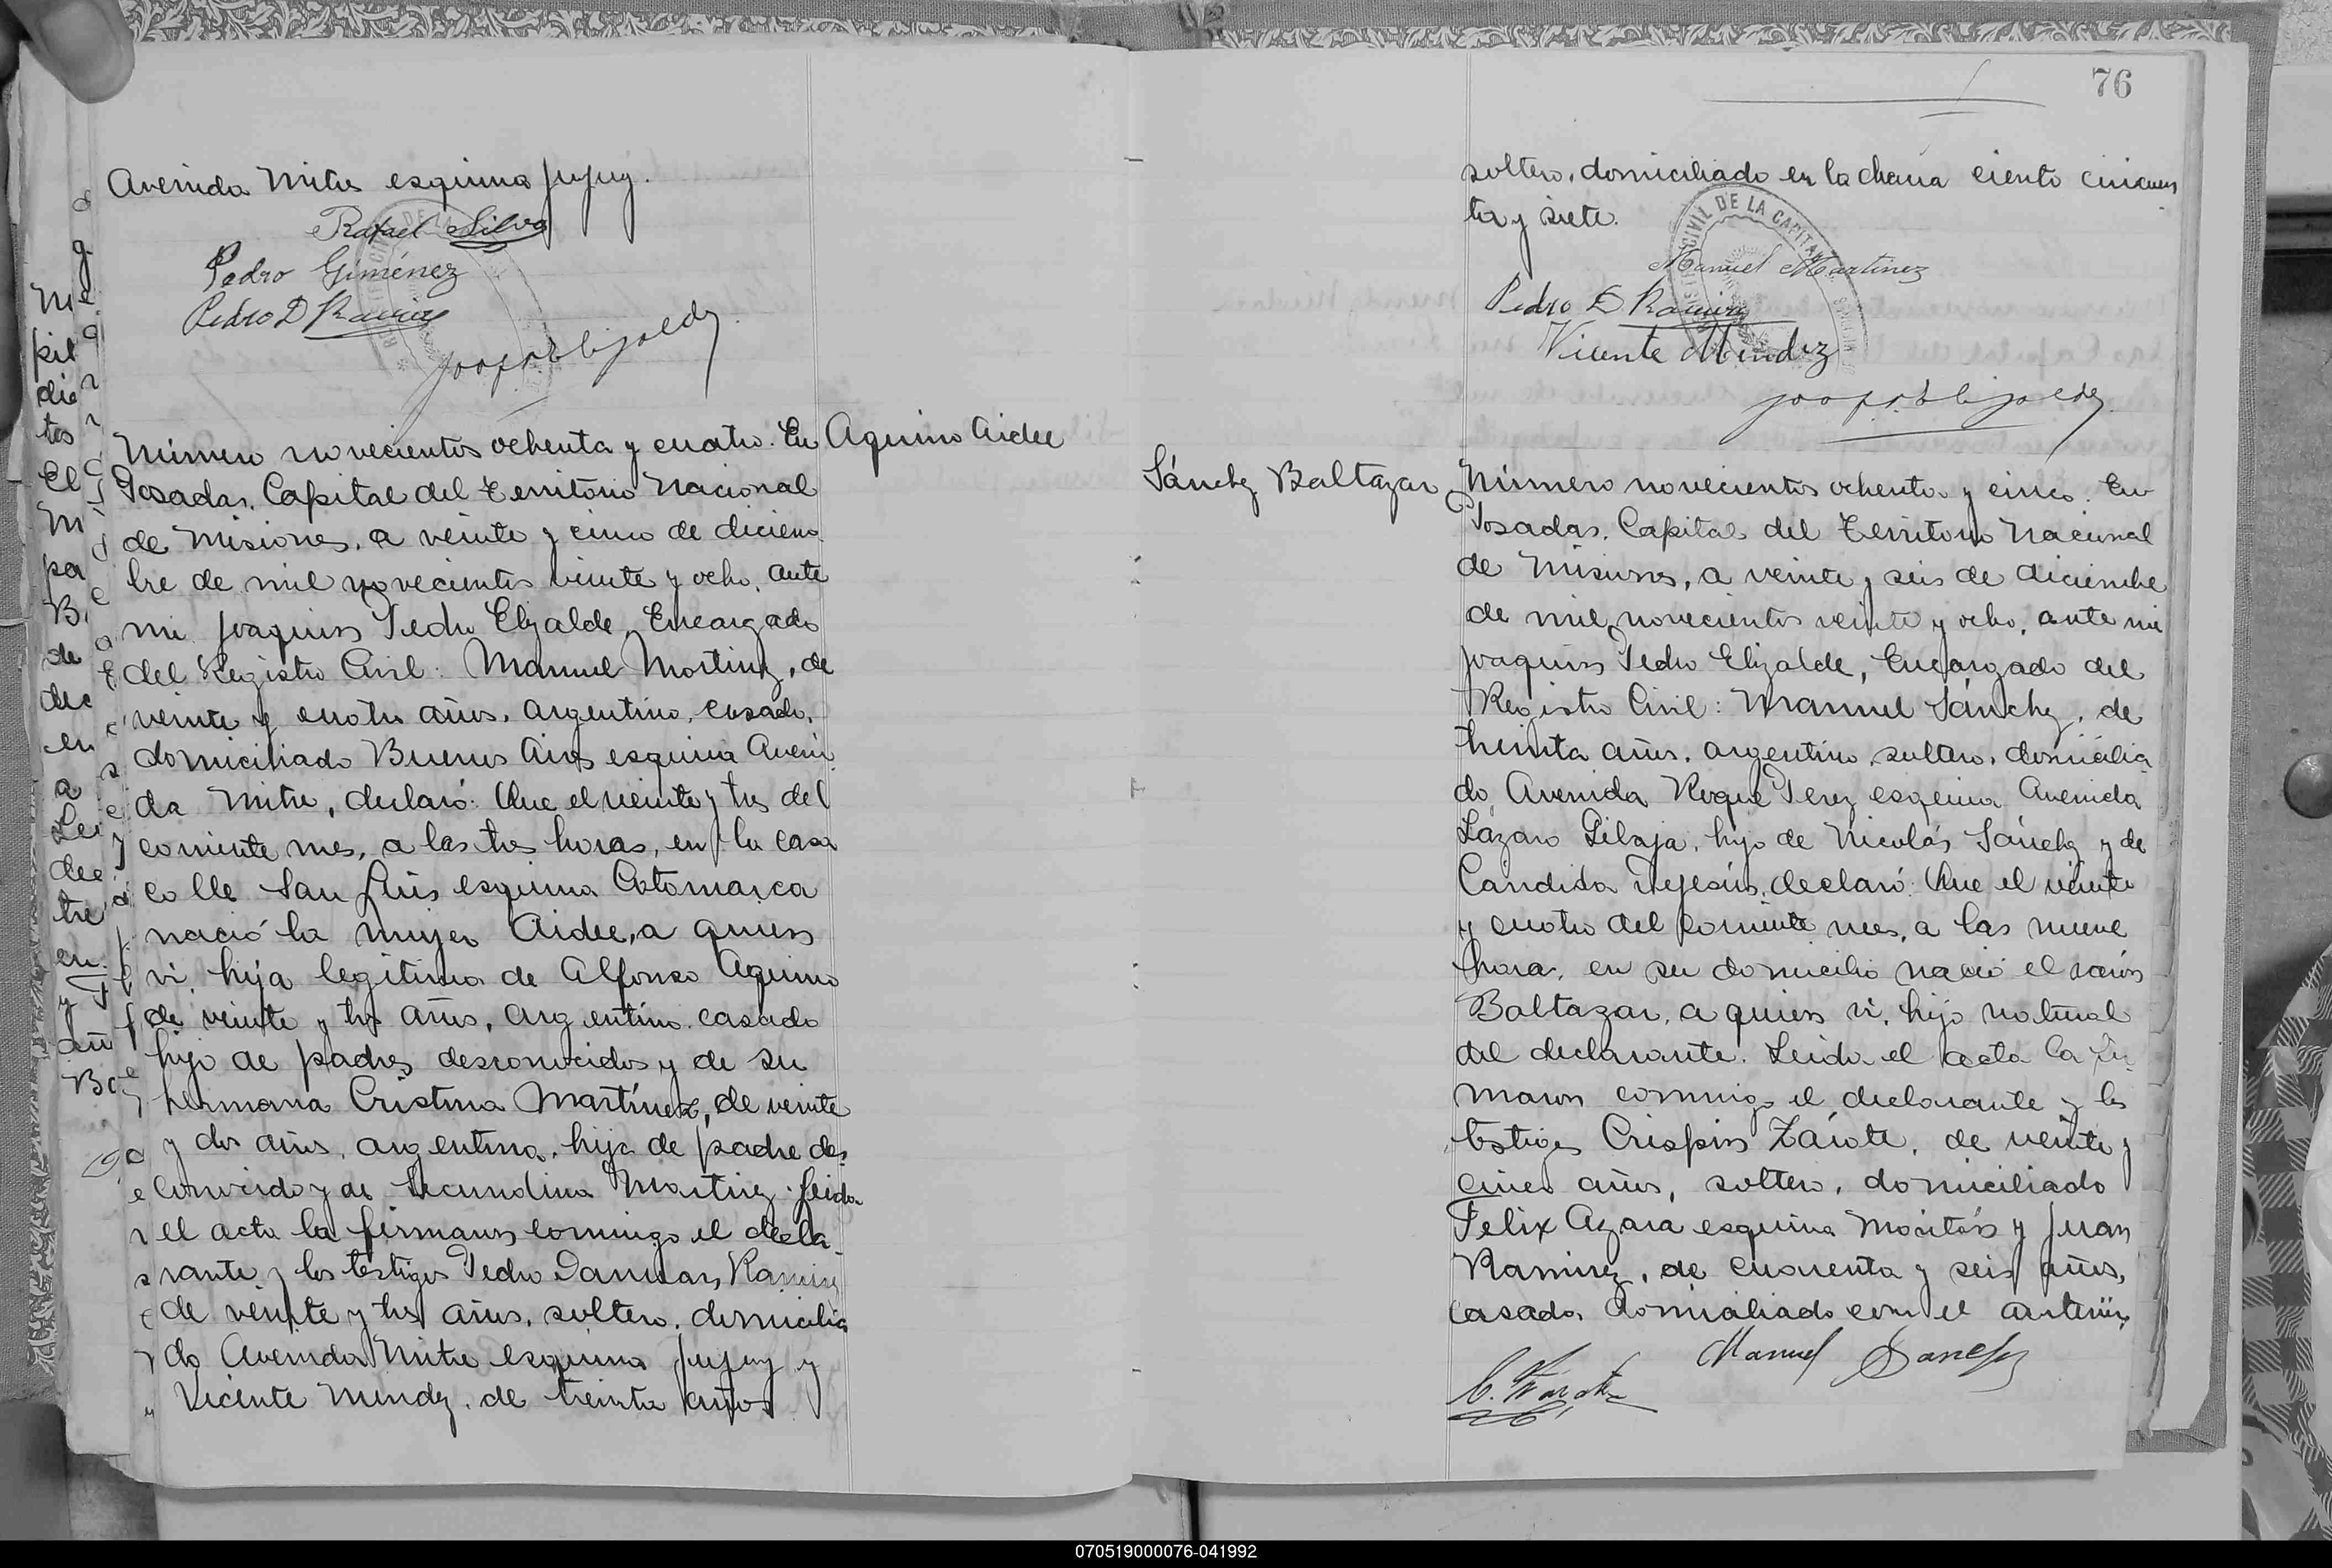 Avenida Mitre esquina Jujuy.
Rafael Silva
Pedro Giménez
Pedro D Ramirez
Número novecientos ochenta y cuatro. En
Aquino Aidee
Posadas, Capital del Territorio Nacional
de Misiones, a veinte y cinco de diciem
bre de mil novecientos veinte y ocho, ante
mi Joaquin Pedro Elizalde, Encargado
del Registro Civil: Manuel Martinez, de
veinte y cuatro años, argentino, casado,
domiciliado Buenos Aires esquina Aveni
da Mitre, declaró: Que el veinte y tres del
corriente mes, a las tres horas, en la casa
calle San Luis esquina Catamarca
nació la mujer Aidee, a quien
vi, hija legitima de Alfonso Aquino
de veinte y tres años, argentino, casado
hijo de padres desconocidos y de su
hermana Cristina Martínez, de veinte
y dos años, argentina, hija de padre des
conocido y de Secundina Martinez. Leida
el acta la firmaron conmigo el decla
rante y los testigos Pedro Damian Ramirez
de veinte y tres años, soltero, domicilia
do Avenida Mitre esquina Jujuy y
Vicente Mendez, de treinta años
76
soltero, domiciliado en la chacra ciento cincuen
ta y siete.
REGISTRO CIVIL DE LA CAPITAL
Manuel Martinez
Pedro D Ramirez
Vicente Mendez
Sánchez Baltazar
Número novecientos ochenta y cinco. En
Posadas, Capital del Territorio Nacional
de Misiones, a veinte y seis de diciembre
de mil novecientos veinte y ocho, ante mi
Joaquin Pedro Elizalde, Encargado del
Registro Civil: Manuel Sánchez, de
treinta años, argentino, soltero, domicilia
do Avenida Roque Perez esquina Avenida
Lázaro Gibaja, hijo de Nicolás Sánchez y de
Candida Dejesús, declaró: Que el veinte
y cuatro del corriente mes, a las nueve
hora, en su domicilio nació el varón
Baltazar, a quien vi, hijo natural
del declarante. Leida el acta la fir
maron conmigo el declarante y los
testigos Crispin Zárate, de veinte y
cinco años, soltero, domiciliado
Felix Azara esquina y Juan
Ramirez, de cuarenta y seis años,
casado, domiciliado con el anterior.
Manuel Sanchez
C. Zarate
070519000076-041992